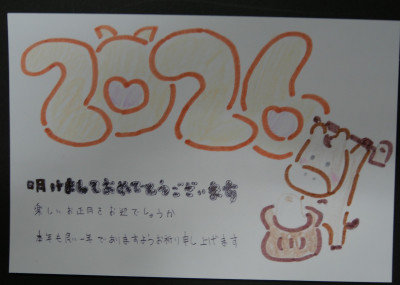 2026
明けましておめでとうございます
楽しいお正月をお迎でしょうか
本年も良い一年でありますようお祈り申し上げます